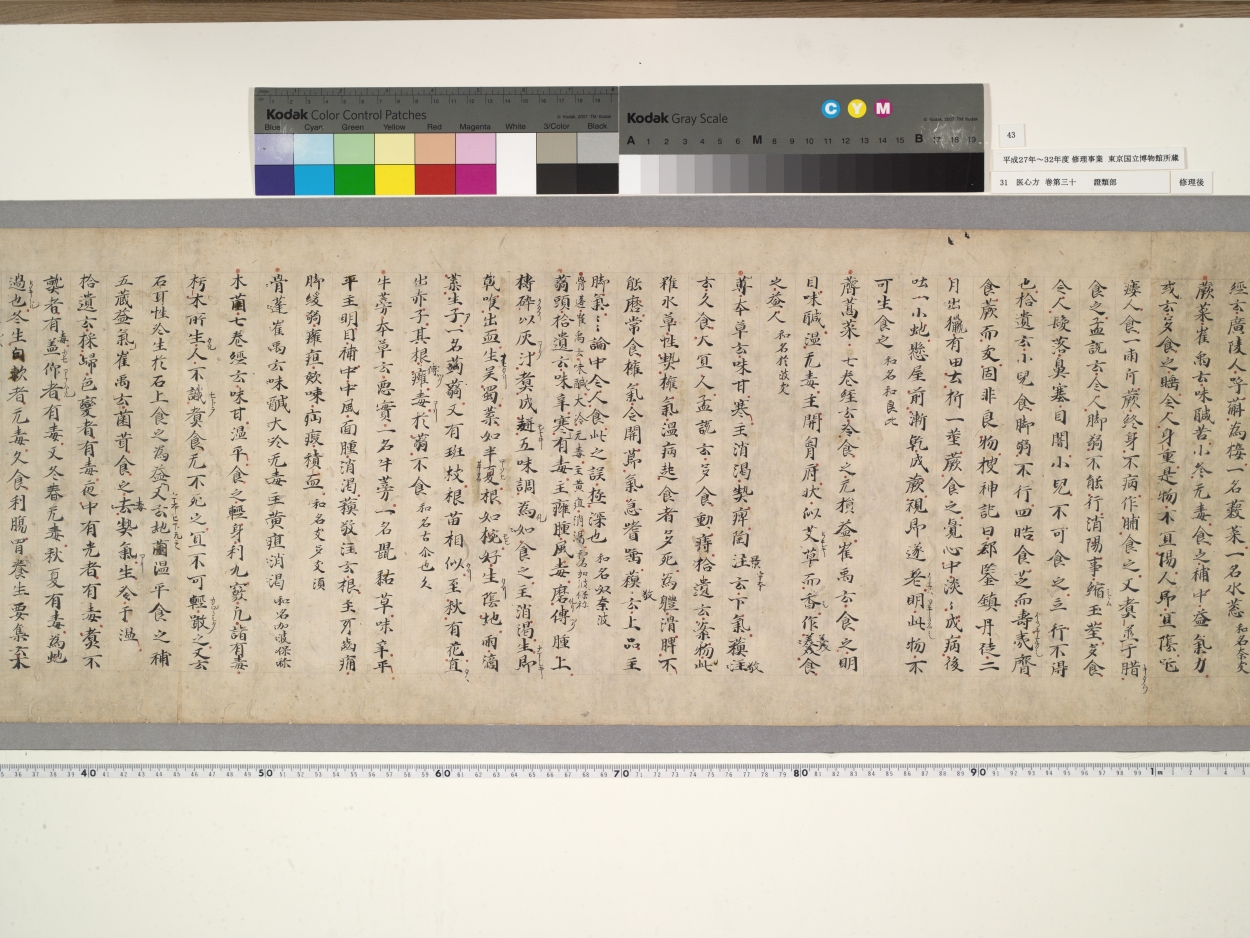 Kodak Color Control Patches
Blue Cyan Green Yellow Red Magenta White 3/Color Black
Kodak Gray Scale
C Y M
A 1 2 3 4 5 6 M 8 9 10 11 12 13 14 15 B 17 18 19
43
平成27年〜32年度 修理事業 東京国立博物館所蔵
31 医心方 巻第三十 證類部
修理後
經云廣陵人呼荊為接一名菽菜一名水葱 和名奈文
蕨菜崔禹云味醎苦小冷无毒食之補中益氣力
或云多食之睡令人身重是物不宜陽人即宜陰
瘻人食一兩斤蕨終身不病作脯食之又煮蒸于腊
食之孟詵云令人脚弱不能行消陽事縮玉莖多食
令人髮落鼻塞目闇小兒不可食之立行不得
也拾遺云小兒食脚弱不行四皓食芝而壽夷齊
食蕨而夭固非良物搜神記曰郗鑒鎮丹徒二
月出獵有甲士折一莖蕨食之覺心中淡淡成病後
吐一小虵懸屋前漸乾成蕨視即遂 明此物不
可生食之 和名和良比
薺蒿菜七卷經云冷食之无損益崔禹云食之明
目味醎溫无毒主開胃府狀似艾草而香作羹食
之益人 和名於波支
蓴本草云味甘寒主消渴熱痺陶注云下氣蘇注
云久食大宜人孟詵云多食動痔拾遺云蓴物此
雖水草性熱擁氣溫病起食者多死為體滑脾不
能磨常食擁氣令關節氣急嗜睡蘇云上品主
脚氣論中令人食此之誤極深也 和名奴奈波
蒟蒻拾遺云味辛寒有毒主癰腫風毒磨傅腫上
擣碎以灰汁煮成餅五味調為如食之主消渴生即
戟喉出血生吳蜀葉如半夏根如椀好生陰地雨滴
葉生子一名蒟蒻又有班杖根苗相似至秋有花直
出赤子其根癰毒於蒻不食 和名古尒也久
牛蒡本草云惡實一名牛蒡一名鼠黏草味辛平
平主明目補中中風面腫消渴蘇敬注云根主牙齒痛
脚緩弱癰疽欬嗽疝瘕積血 和名支多支須
骨蓬崔禹云味醎大冷无毒主黃疸消渴 和名加波保祢
木菌七卷經云味甘溫平食之輕身利九竅凡諸有毒
朽木所生人不識煮食无不死之宜不可輕噉之又云
石耳性冷生於石上食之為益又云地菌溫平食之補
五藏益氣崔禹云菌茸食之去熱氣生冷于
拾遺云採歸色變者有毒夜中有光者有毒煮不
熟者有毒蓋仰者有毒又冬春无毒秋夏有毒為虵
過也冬生白軟者无毒久食利腸胃養生要集云木